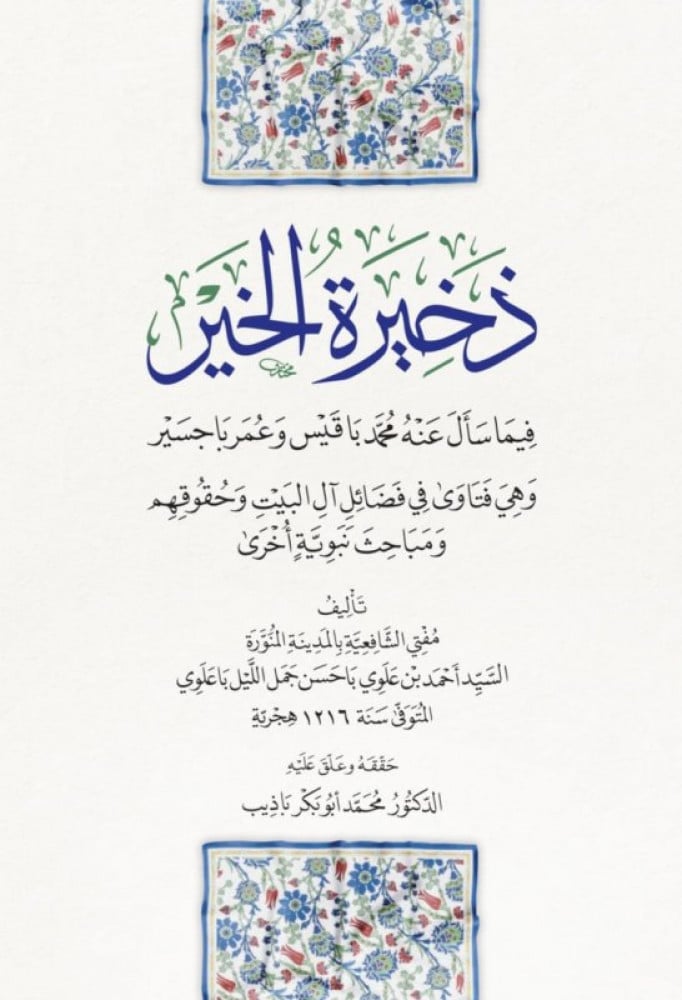 ذَخِيرَةُ الخَيْر
فِيمَا سَأَلَ عَنْهُ مُحَمَّد بَا قَيْس وَعُمَر بَا جسَيْر
وَهِيَ فَتَاوَىٰ فِي فَضَائِلِ آلِ البَيْتِ وَحُقُوقِهِم
وَمَبَاحِثَ نَبَوِيَّةٍ أُخْرَىٰ
تَأْلِيفُ
مُفْتِي الشَّافِعِيَّةِ بِالمَدِينَةِ المُنَوَّرَةِ
السَّيِّد أَحْمَد بْن عَلَوِي بَاحَسَن جَمَل اللَّيْل بَاعَلَوِي
المُتَوَفَّىٰ سَنَة ١٢١٦ هِجْرِيَّة
حَقَّقَهُ وعَلَّقَ عَلَيْهِ
الدّكتُورُ مُحَمَّد أبُو بَكْر بَاذِيب